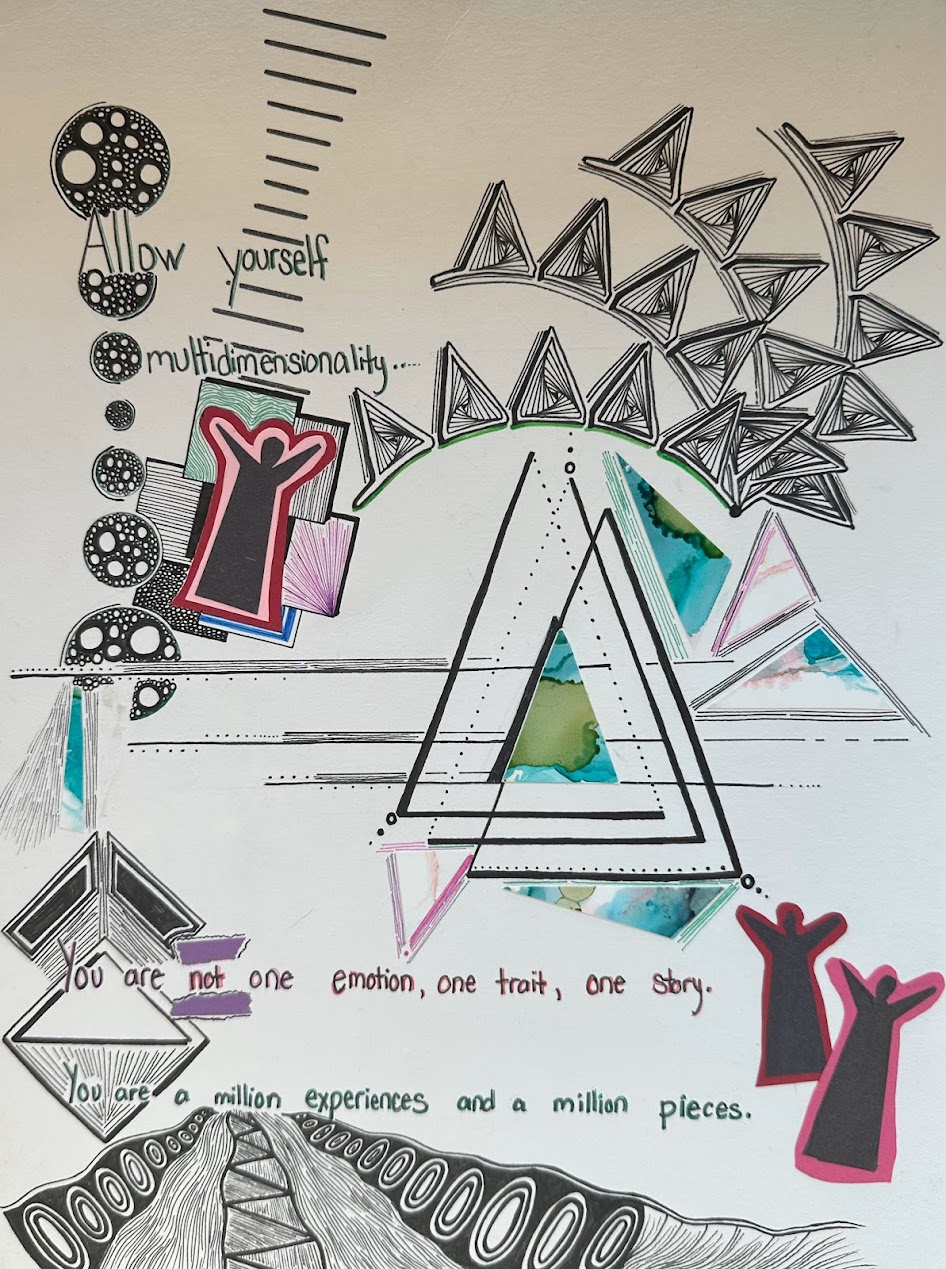 Allow yourself
multidimensionality.....
You are not one emotion, one trait, one story.
You are a million experiences and a million pieces.